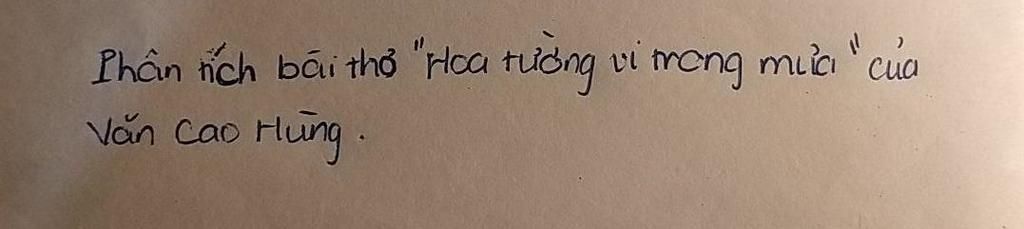 Phân tích bài thơ "Hoa tường vi trong mưa" của
Văn Cao Hùng.